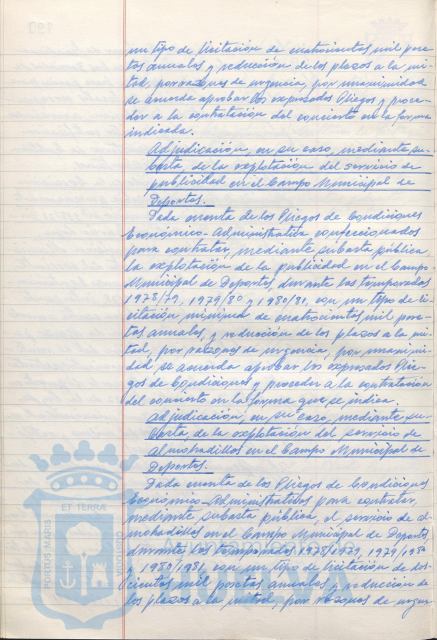 un tipo de licitación de cuatrocientas mil pese-
tas anuales y reducción de los plazos a la mi-
tad, por razones de urgencia, por unanimidad
se acuerda aprobar los expresados Pliegos y proce-
der a la contratación del concierto en la forma
indicada.
Adjudicación, en su caso, mediante su-
basta, de la explotación del servicio de
publicidad en el Campo Municipal de
Deportes.
Dada cuenta de los Pliegos de Condiciones
Económico-Administrativa confeccionados
para contratar, mediante subasta pública,
la explotación de la publicidad en el Campo
Municipal de Deportes, durante las temporadas
1978/79, 1979/80 y 1980/81, con un tipo de li-
citación mínima de cuatrocientas mil pese-
tas anuales, y reducción de los plazos a la mi-
tad, por razones de urgencia, por unanimi-
dad se acuerda aprobar los expresados Plie-
gos de Condiciones y proceder a la contratación
del concierto en la forma que se indica.
Adjudicación, en su caso, mediante su-
basta, de la explotación del servicio de
almohadillas en el Campo Municipal de
Deportes.
Dada cuenta de los Pliegos de Condiciones
Económico-Administrativas para contratar,
mediante subasta pública, el servicio de al-
mohadillas en el Campo Municipal de Deportes
durante las temporadas 1978/1979, 1979/1980
y 1980/1981, con un tipo de licitación de dos-
cientas mil pesetas anuales, y reducción de
los plazos a la mitad, por razones de urgen-
PORTUS MARIS ET TERRAE CUSTODIA